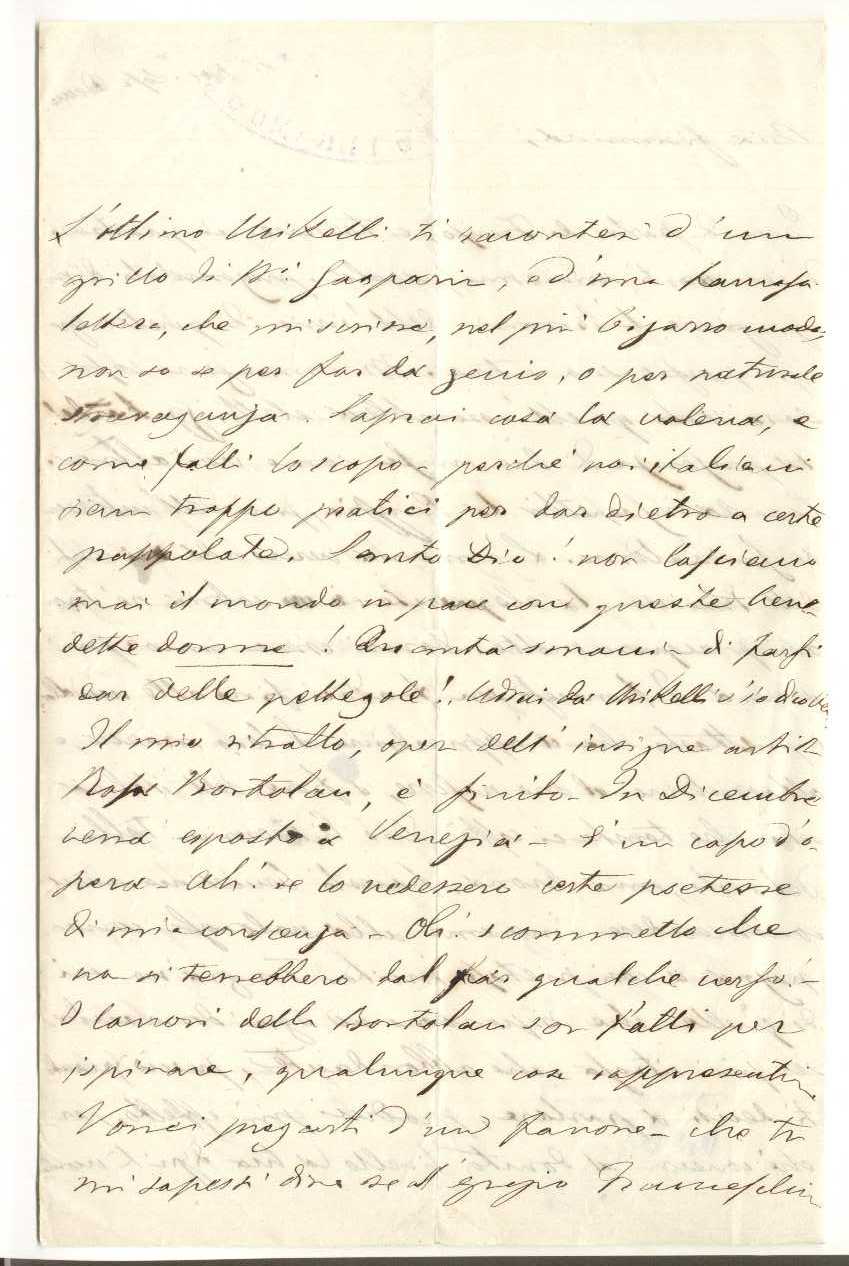 L'ottimo Mikelli ti racconterà d'un
grillo di Gasparin, e d'una famosa
lettera, che mi scrisse, nel più bizzarro modo,
non so se per far da genio, o per naturale
stravaganza. Saprai cosa la voleva, e
come fallì lo scopo - perché noi italiani
siam troppo pratici per dar dietro a certe
pappolate. Santo Dio! non lasciano
mai il mondo in pace con queste bene-
dette donne! Quanta smania di farsi
dar delle pettegole! Udrai da Mikelli s'io dico
Il mio ritratto, opera dell'insigne artista
Rosa Bortolan, è finito - In Dicembre
verrà esposto a Venezia - È un capo d'o-
pera - Ah! se lo vedessero certe poetesse
di mia conoscenza - Oh! scommetto che
non si terrebbero dal far qualche verso! -
I lavori della Bortolan son fatti per
ispirare, qualunque cosa rappresenti
Vorrei pregarti d'un favore - che tu
mi sapessi dire se all'egregio